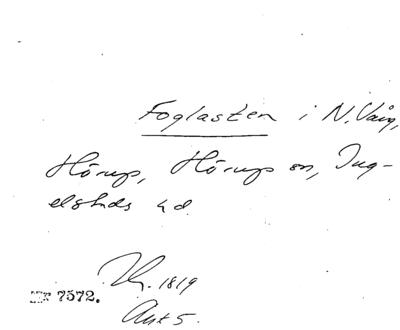 Foglasten i N. Vång,
Hörup, Hörups sn, Ing-
elstads hd.
1819
7572.
Akt 5.